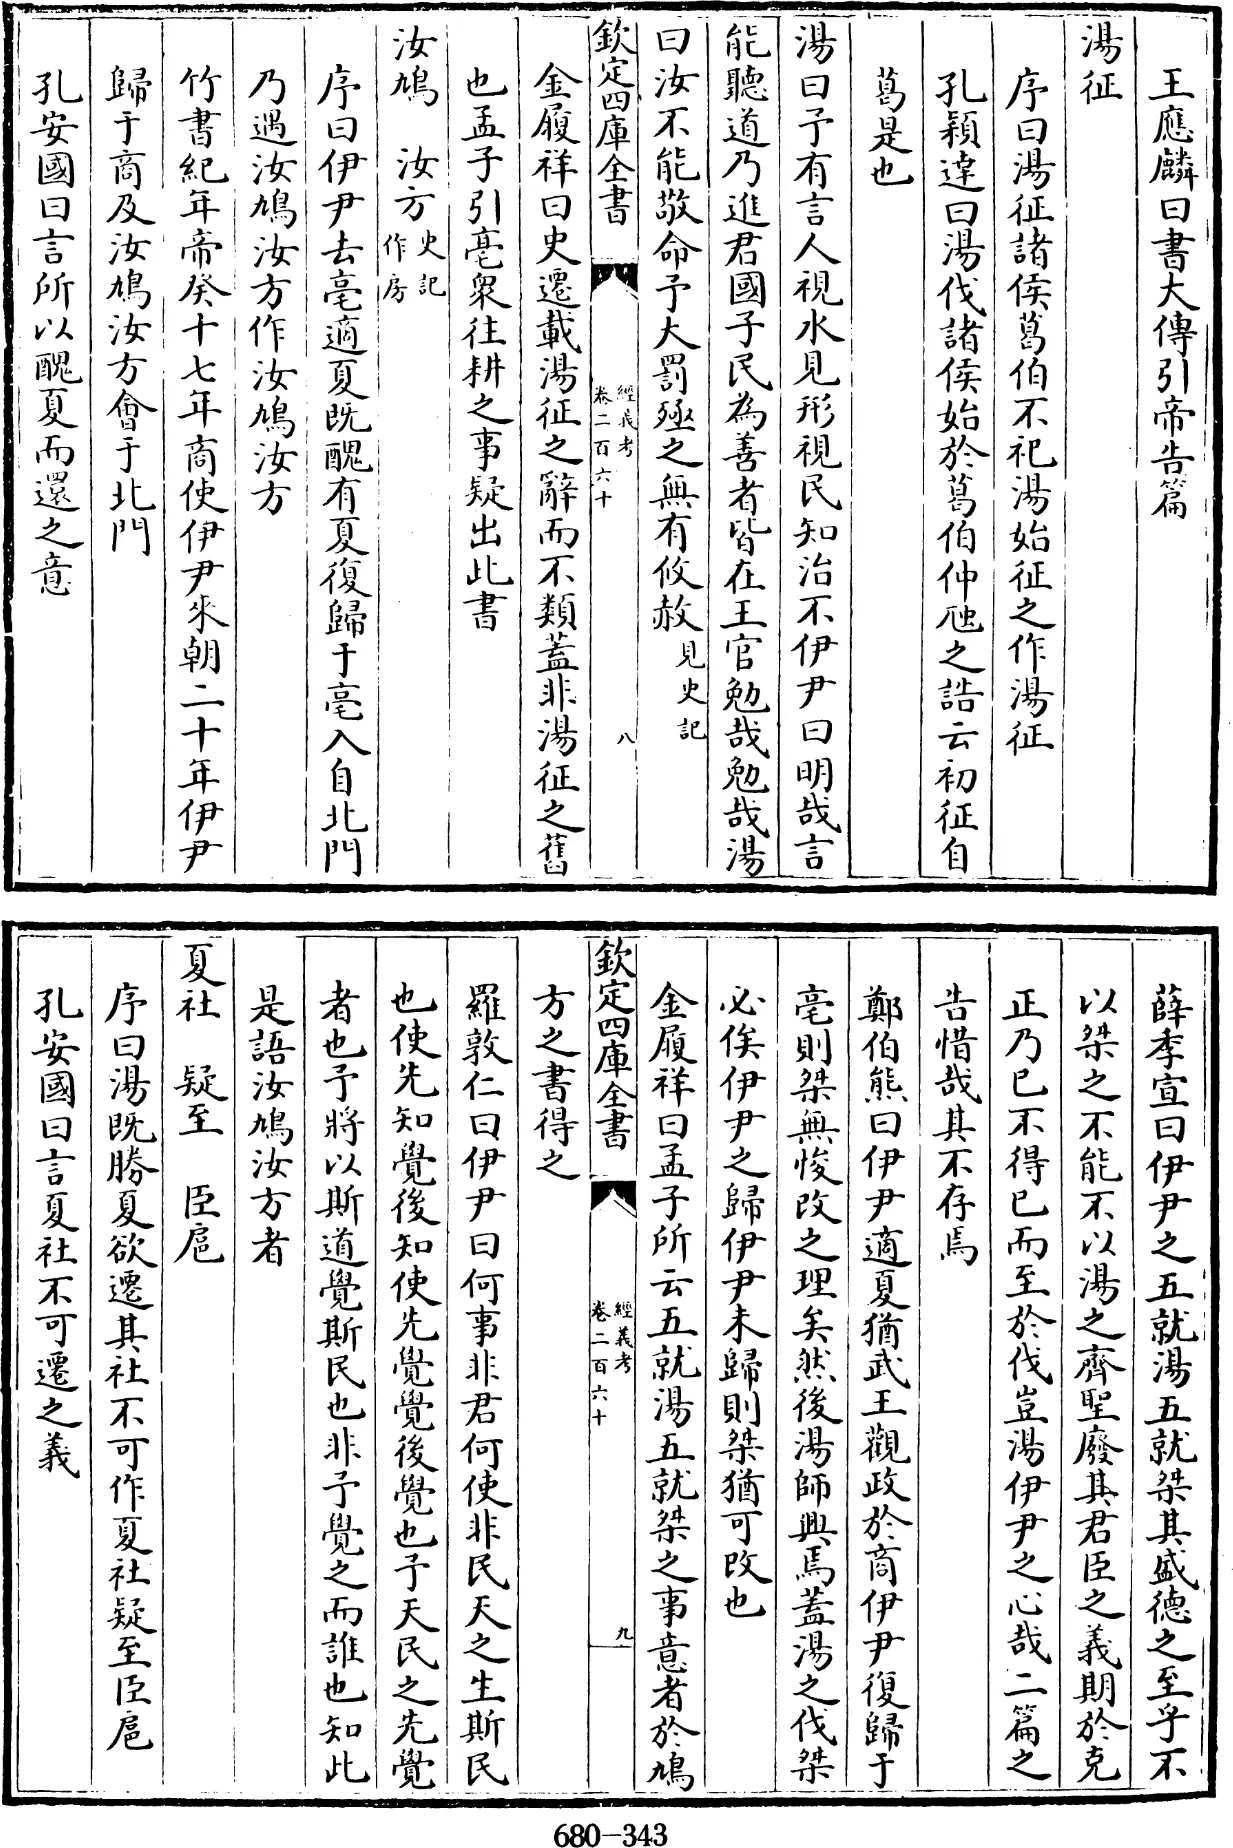 王應麟曰書大傳引帝告篇
湯征
序曰湯征諸侯葛伯不祀湯始征之作湯征
孔穎達曰湯伐諸侯始於葛伯仲虺之誥云初征自
葛是也
湯曰予有言人視水見形視民知治不伊尹曰明哉言
能聽道乃進君國子民為善者皆在王官勉哉勉哉湯
曰汝不能敬命予大罰殛之無有攸赦見史記
欽定四庫全書
經義考
卷二百六十
八
金履祥曰史遷載湯征之辭而不類蓋非湯征之舊
也孟子引亳衆往耕之事疑出此書
汝鳩 汝方史記作房
序曰伊尹去亳適夏既醜有夏復歸于亳入自北門
乃遇汝鳩汝方作汝鳩汝方
竹書紀年帝癸十七年商使伊尹來朝二十年伊尹
歸于商及汝鳩汝方會于北門
孔安國曰言所以醜夏而還之意
薛季宣曰伊尹之五就湯五就桀其盛德之至乎不
以桀之不能不以湯之齊聖廢其君臣之義期於克
正乃已不得已而至於伐豈湯伊尹之心哉二篇之
告惜哉其不存焉
鄭伯熊曰伊尹適夏猶武王觀政於商伊尹復歸于
亳則桀無悛改之理矣然後湯師興焉蓋湯之伐桀
必俟伊尹之歸伊尹未歸則桀猶可改也
金履祥曰孟子所云五就湯五就桀之事意者於鳩
欽定四庫全書
經義考
卷二百六十
九
方之書得之
羅敦仁曰伊尹曰何事非君何使非民天之生斯民
也使先知覺後知使先覺覺後覺也予天民之先覺
者也予將以斯道覺斯民也非予覺之而誰也知此
是語汝鳩汝方者
夏社 疑至 臣扈
序曰湯既勝夏欲遷其社不可作夏社疑至臣扈
孔安國曰言夏社不可遷之義
680-343